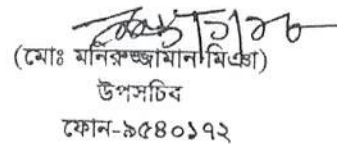 (মোঃ মনিরুজ্জামান মিএা)
উপসচিব
ফোন-৯৫৪০১৭২